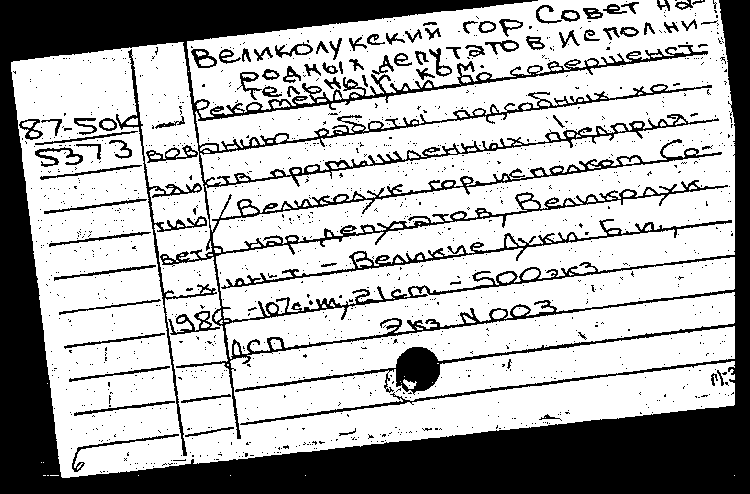 Великолукский гор. Совет на-
родных депутатов. Исполни-
тельный ком.
Рекомендации по совершенст-
87-50К
5373
вованию работы подсобных хо-
зяйств промышленных предприя-
тий / Великолук. гор. исполком Со-
вета нар. депутатов, Великолук.
с.-х. ин-т. - Великие Луки: Б.и.,
1986 -107с.: т, 21 ст. - 500 экз
ДСП Экз N 003
6